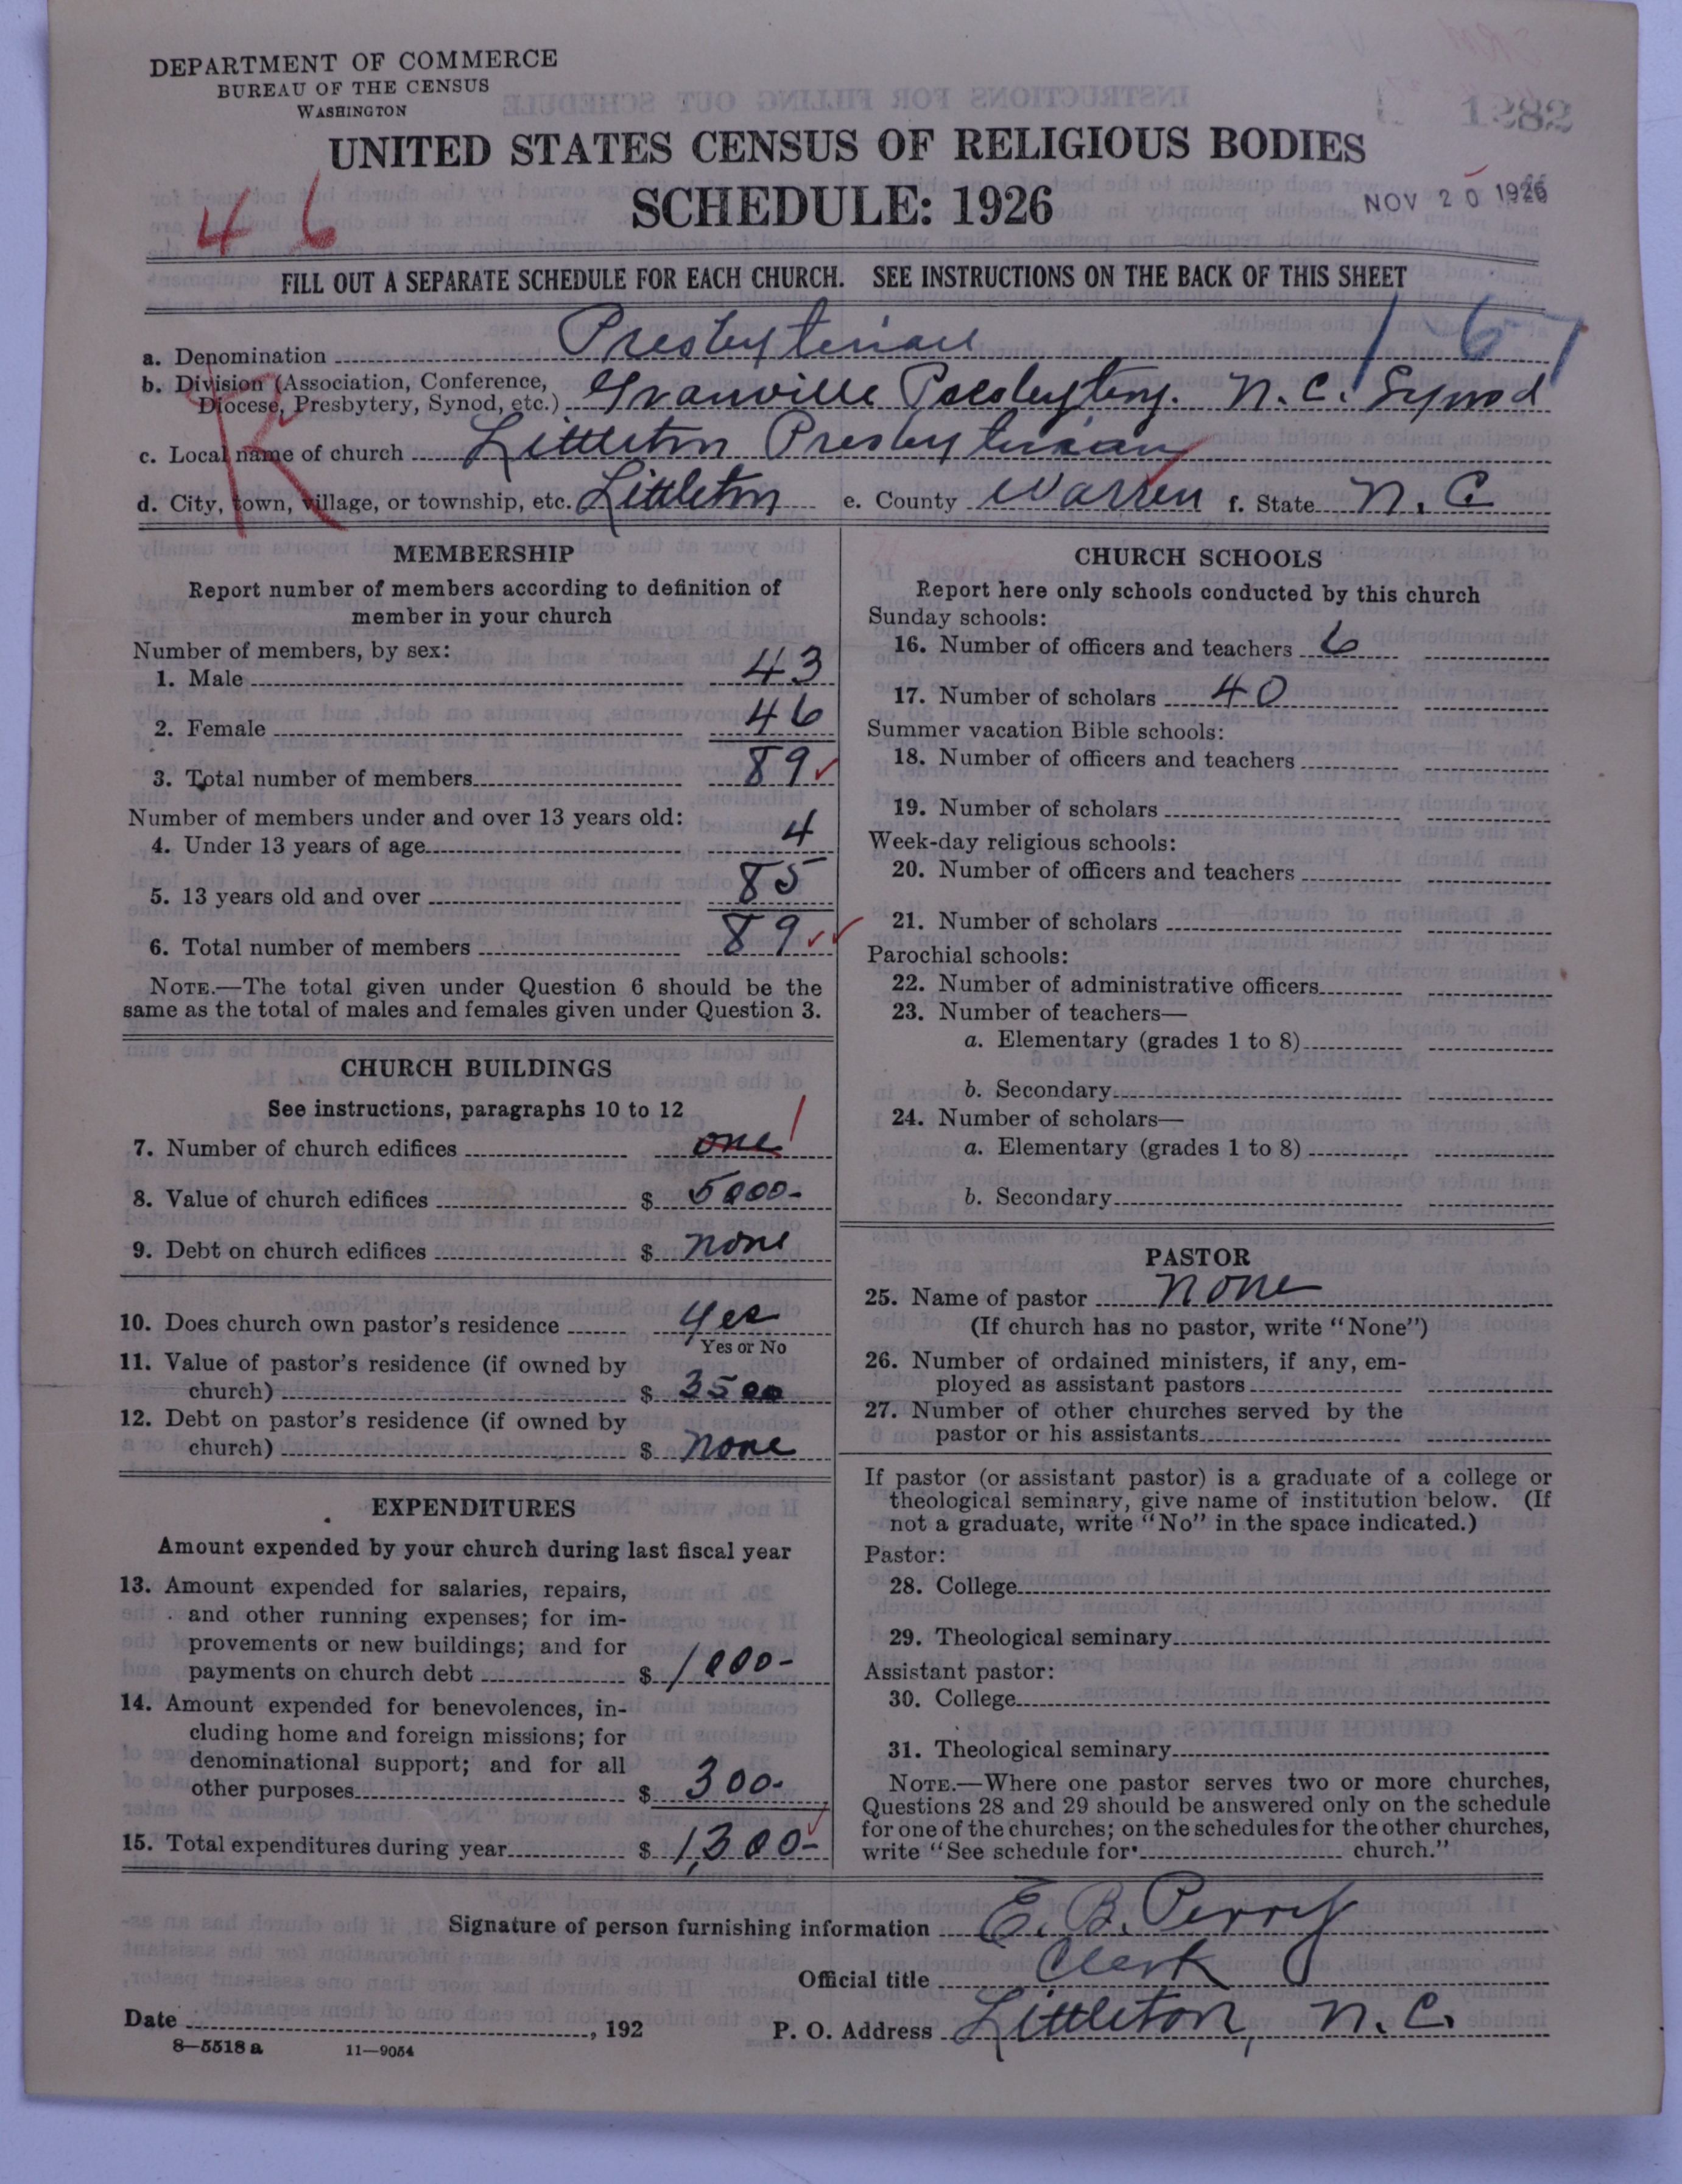 DEPARTMENT OF COMMERCE
BUREAU OF THE CENSUS
WASHINGTON
1282
UNITED STATES CENSUS OF RELIGIOUS BODIES
SCHEDULE: 1926
NOV 20 1926
46
FILL OUT A SEPARATE SCHEDULE FOR EACH CHURCH. SEE INSTRUCTIONS ON THE BACK OF THIS SHEET
167
a. Denomination Presbyterian
b. Division (Association, Conference,
Diocese, Presbytery, Synod, etc.) Granville Presbytery. N.C. Synod
R
c. Local name of church Littleton Presbyterian
d. City, town, village, or township, etc. Littleton e. County Warren f. State N. C.
MEMBERSHIP
Report number of members according to definition of
member in your church
Number of members, by sex:
1. Male 43
2. Female 46
3. Total number of members 89
Number of members under and over 13 years old:
4. Under 13 years of age 4
5. 13 years old and over 85
6. Total number of members 89
NOTE.—The total given under Question 6 should be the
same as the total of males and females given under Question 3.
CHURCH BUILDINGS
See instructions, paragraphs 10 to 12
7. Number of church edifices one 1
8. Value of church edifices $ 5000-
9. Debt on church edifices $ none
10. Does church own pastor's residence Yes
Yes or No
11. Value of pastor's residence (if owned by
church) $ 3500
12. Debt on pastor's residence (if owned by
church) $ none
EXPENDITURES
Amount expended by your church during last fiscal year
13. Amount expended for salaries, repairs,
and other running expenses; for im-
provements or new buildings; and for
payments on church debt $ 1000-
14. Amount expended for benevolences, in-
cluding home and foreign missions; for
denominational support; and for all
other purposes $ 300-
15. Total expenditures during year $ 1,300-
CHURCH SCHOOLS
Report here only schools conducted by this church
Sunday schools:
16. Number of officers and teachers 6
17. Number of scholars 40
Summer vacation Bible schools:
18. Number of officers and teachers
19. Number of scholars
Week-day religious schools:
20. Number of officers and teachers
21. Number of scholars
Parochial schools:
22. Number of administrative officers
23. Number of teachers—
a. Elementary (grades 1 to 8)
b. Secondary
24. Number of scholars—
a. Elementary (grades 1 to 8)
b. Secondary
PASTOR
25. Name of pastor none
(If church has no pastor, write "None")
26. Number of ordained ministers, if any, em-
ployed as assistant pastors
27. Number of other churches served by the
pastor or his assistants
If pastor (or assistant pastor) is a graduate of a college or
theological seminary, give name of institution below. (If
not a graduate, write "No" in the space indicated.)
Pastor:
28. College
29. Theological seminary
Assistant pastor:
30. College
31. Theological seminary
NOTE.—Where one pastor serves two or more churches,
Questions 28 and 29 should be answered only on the schedule
for one of the churches; on the schedules for the other churches,
write "See schedule for church."
Signature of person furnishing information E. B. Perry
Official title Clerk
Date , 192 P. O. Address Littleton, N. C.
8—5518 a 11—9054